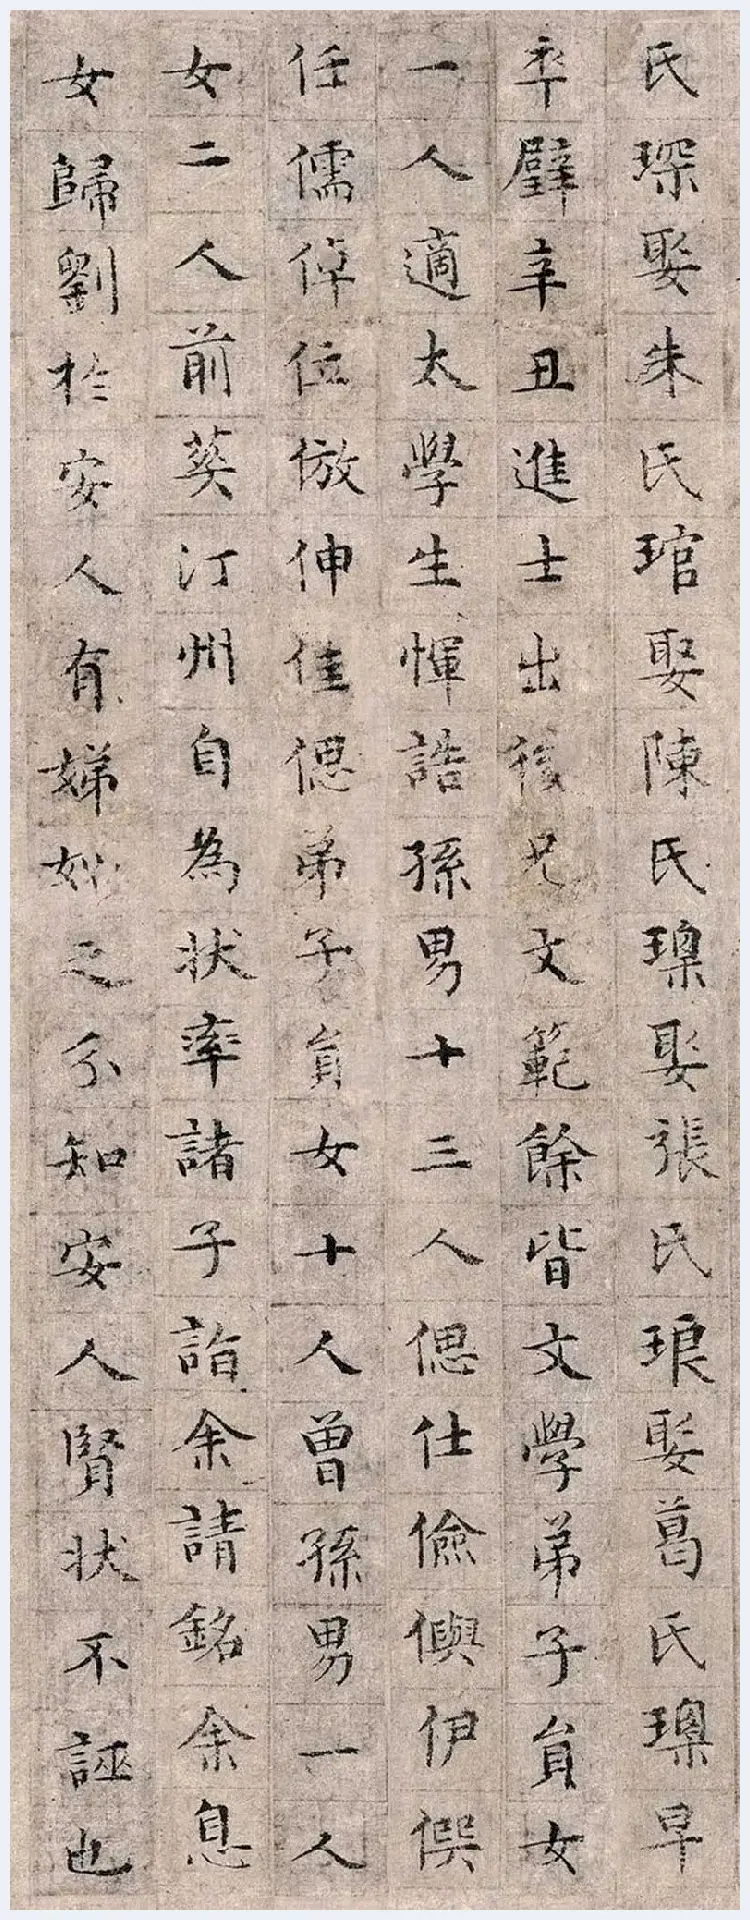 氏琛娶朱氏琯娶陳氏璟娶張氏琅娶葛氏璟早
卒璧辛丑進士出後兄文範餘皆文學弟子員女
一人適太學生惲誥孫男十三人偲仕儉儗伊僎
任儒倬位倣伸佳偲弟子員女十人曾孫男一人
女二人前葬汀州自為狀率諸子詣余請銘余息
女歸劉於安人有娣姒之分知安人賢狀不誣也